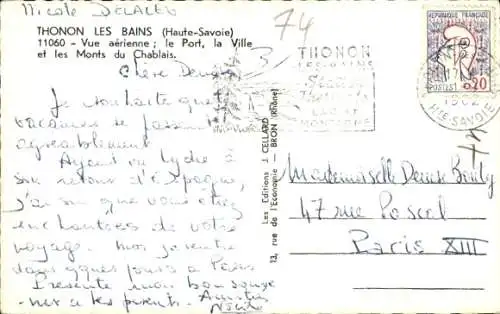 Nicole DELALEU
74
THONON LES BAINS (Haute-Savoie)
11060 - Vue aérienne ; le Port, la Ville
et les Monts du Chablais.
Chère Denise
Je souhaite que
vacances se passent
agréablement
Ayant vu Lydie à
son retour d'Espagne,
j'ai su que vous étiez
enchantées de votre
voyage.
dans qques jours à Paris
Présente mon bonjour
à tes parents. Amitiés
Nicole
Les Editions J. CELLARD
13, rue de l'Economie - BRON (Rhône)
THONON
LES BAINS
STATION
THERMALE
LAC ET
MONTAGNE
REPUBLIQUE FRANÇAISE
POSTES 0,20
17
1962
HTE-SAVOIE
Mademoiselle Denise
47 rue Pascal
Paris XIII